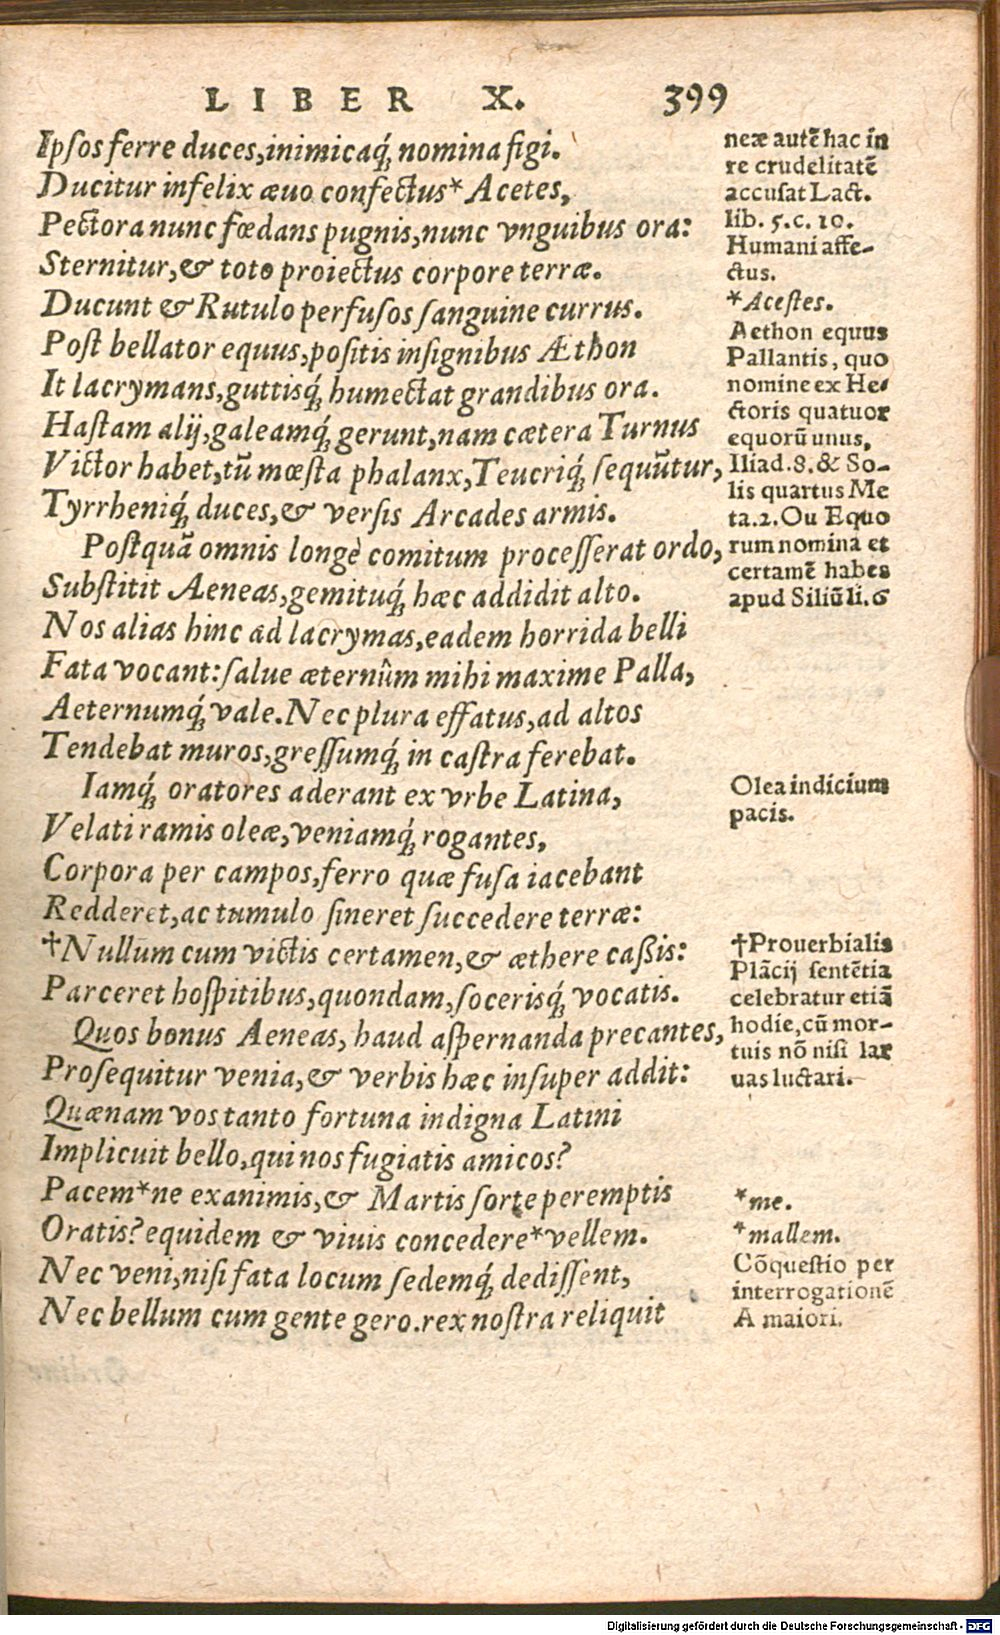 LIBER X. 399
Ipsos ferre duces, inimicaq́; nomina figi.
Ducitur infelix æuo confectus* Acetes,
Pectora nunc fœdans pugnis, nunc vnguibus ora:
Sternitur, & toto proiectus corpore terræ.
Ducunt & Rutulo perfusos sanguine currus.
Post bellator equus, positis insignibus Æthon
It lacrymans, guttisq́; humectat grandibus ora.
Hastam alij, galeamq́; gerunt, nam cætera Turnus
Victor habet, tũ mœsta phalanx, Teucriq́; sequũtur,
Tyrrheniq́; duces, & versis Arcades armis.
Postquã omnis longè comitum processerat ordo,
Substitit Aeneas, gemituq́; hæc addidit alto.
Nos alias hinc ad lacrymas, eadem horrida belli
Fata vocant: salue æternûm mihi maxime Palla,
Aeternumq́; vale. Nec plura effatus, ad altos
Tendebat muros, gressumq́; in castra ferebat.
Iamq́; oratores aderant ex vrbe Latina,
Velati ramis oleæ, veniamq́; rogantes,
Corpora per campos, ferro quæ fusa iacebant
Redderet, ac tumulo sineret succedere terræ:
†Nullum cum victis certamen, & æthere cassis:
Parceret hospitibus, quondam, socerisq́; vocatis.
Quos bonus Aeneas, haud aspernanda precantes,
Prosequitur venia, & verbis hæc insuper addit:
Quænam vos tanto fortuna indigna Latini
Implicuit bello, qui nos fugiatis amicos?
Pacem*ne exanimis, & Martis sorte peremptis
Oratis? equidem & viuis concedere*vellem.
Nec veni, nisi fata locum sedemq́; dedissent,
Nec bellum cum gente gero. rex nostra reliquit
neæ autẽ hac in
re crudelitatẽ
accusat Lact.
lib. 5. c. 10.
Humani affe-
ctus.
*Acestes.
Aethon equus
Pallantis, quo
nomine ex He-
ctoris quatuor
equorũ unus,
Iliad. 8. & So-
lis quartus Me
ta. 2. Ou Equo
rum nomina et
certamẽ habes
apud Siliũ li. 6
Olea indicium
pacis.
†Prouerbialis
Plãcij sentẽtia
celebratur etiã
hodie, cũ mor-
tuis nõ nisi lar
uas luctari.
*me.
*mallem.
Cõquestio per
interrogationẽ
A maiori.
Digitalisierung gefördert durch die Deutsche Forschungsgemeinschaft - DFG